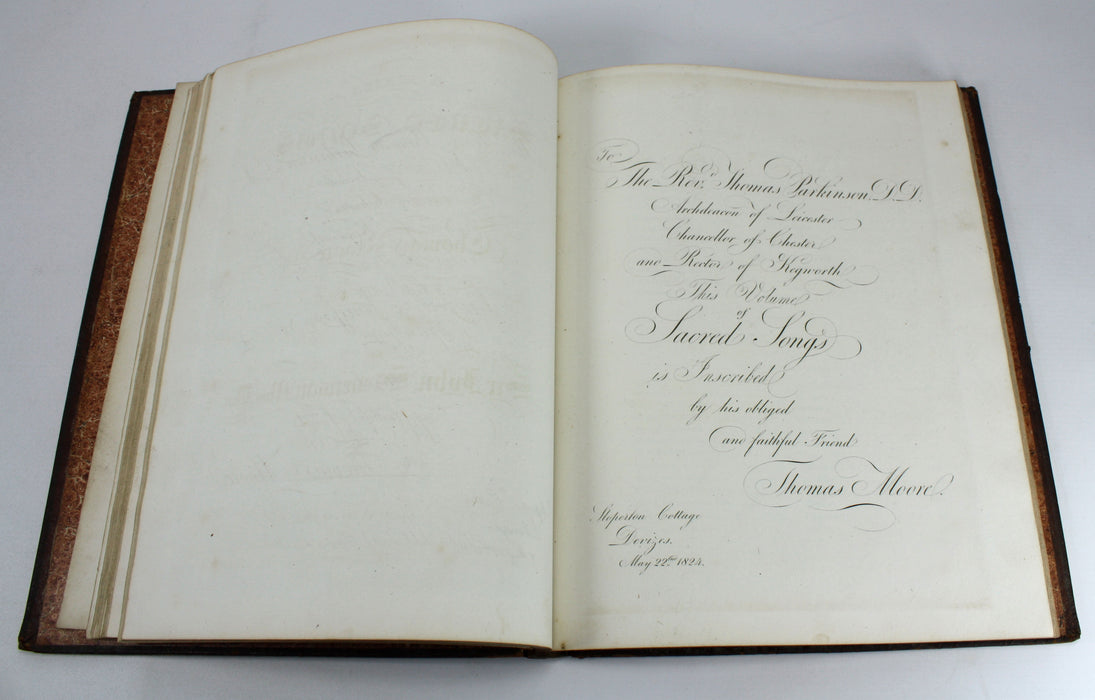 To
The Rev.d Thomas Parkinson, D.D.
Archdeacon of Leicester
Chancellor of Chester
and Rector of Kegworth
This Volume
of
Sacred Songs
is Inscribed
by his obliged
and faithful Friend
Thomas Moore.
Sloperton Cottage
Devizes.
May 22nd 1824.